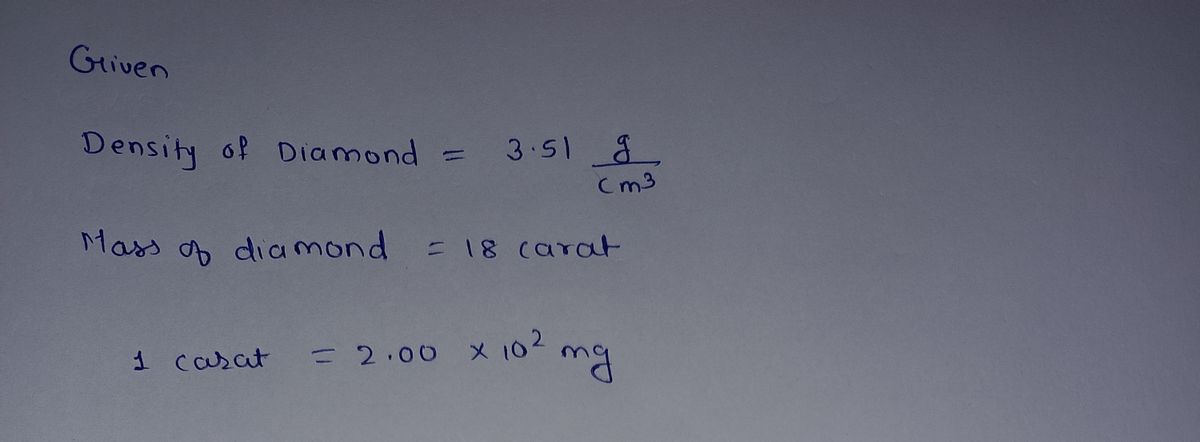 Given
Density of Diamond = 3.51 g/cm³
Mass of diamond = 18 carat
1 carat = 2.00 × 10² mg